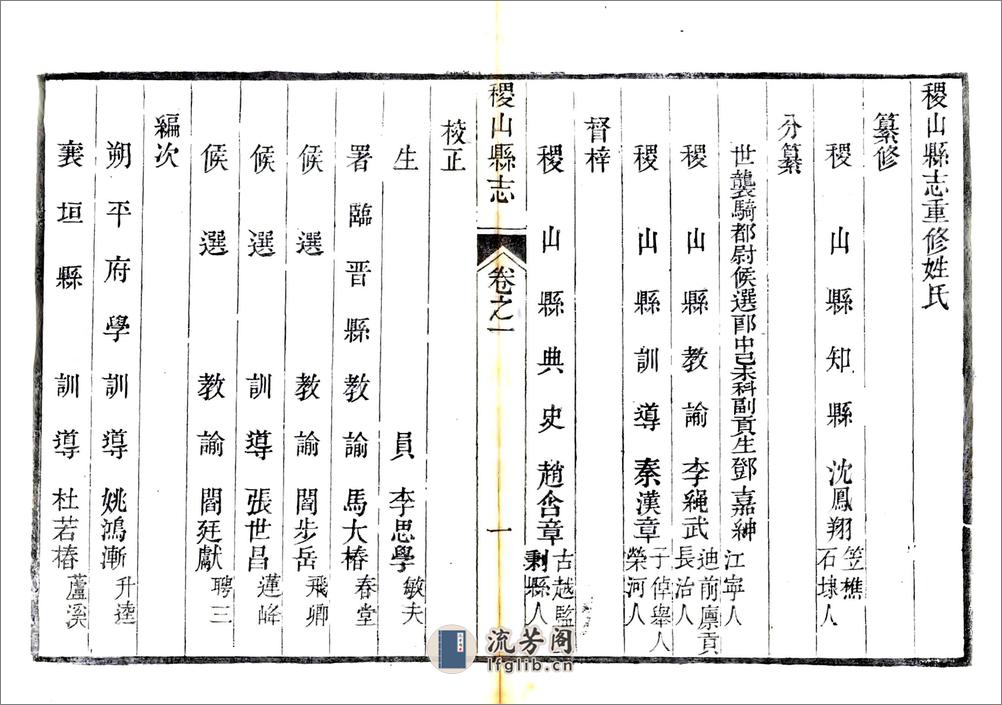 稷山縣志重修姓氏
纂修
稷山縣知縣沈鳳翔笠樵石埭人
分纂
世襲騎都尉候選郎中己未科副貢生鄧嘉紳江寧人
稷山縣教諭李繩武迪前廪貢長治人
稷山縣訓導秦漢章子倬舉人榮河人
督梓
稷山縣典史趙含章古越監剩縣人
稷山縣志 卷之一 一
校正
生員李思學敏夫
署臨晋縣教諭馬大椿春堂
候選教諭閻步岳飛卿
候選訓導張世昌蓮峰
候選教諭閻廷獻聘三
編次
朔平府學訓導姚鴻漸升逵
襄垣縣訓導杜若椿蘆溪
流芳阁
lfglib.cn